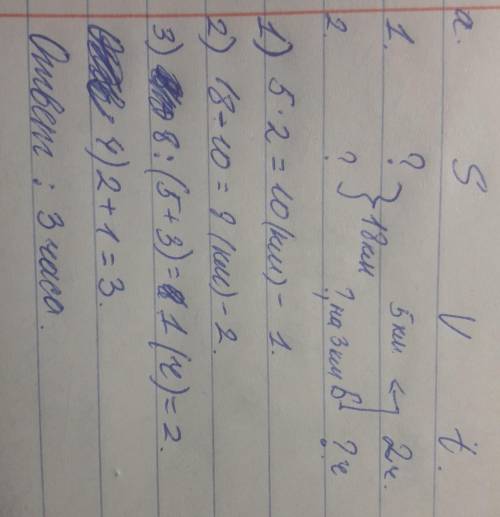 а. S V t.
1. ? } 18 км 5 км ← 2 ч.
2. ? ? на 3 км б ? ч
1) 5 · 2 = 10 (км) - 1.
2) 18 - 10 = 8 (км) - 2.
3) 8 : (5 + 3) = 1 (ч) = 2.
4) 2 + 1 = 3.
Ответ : 3 часа.